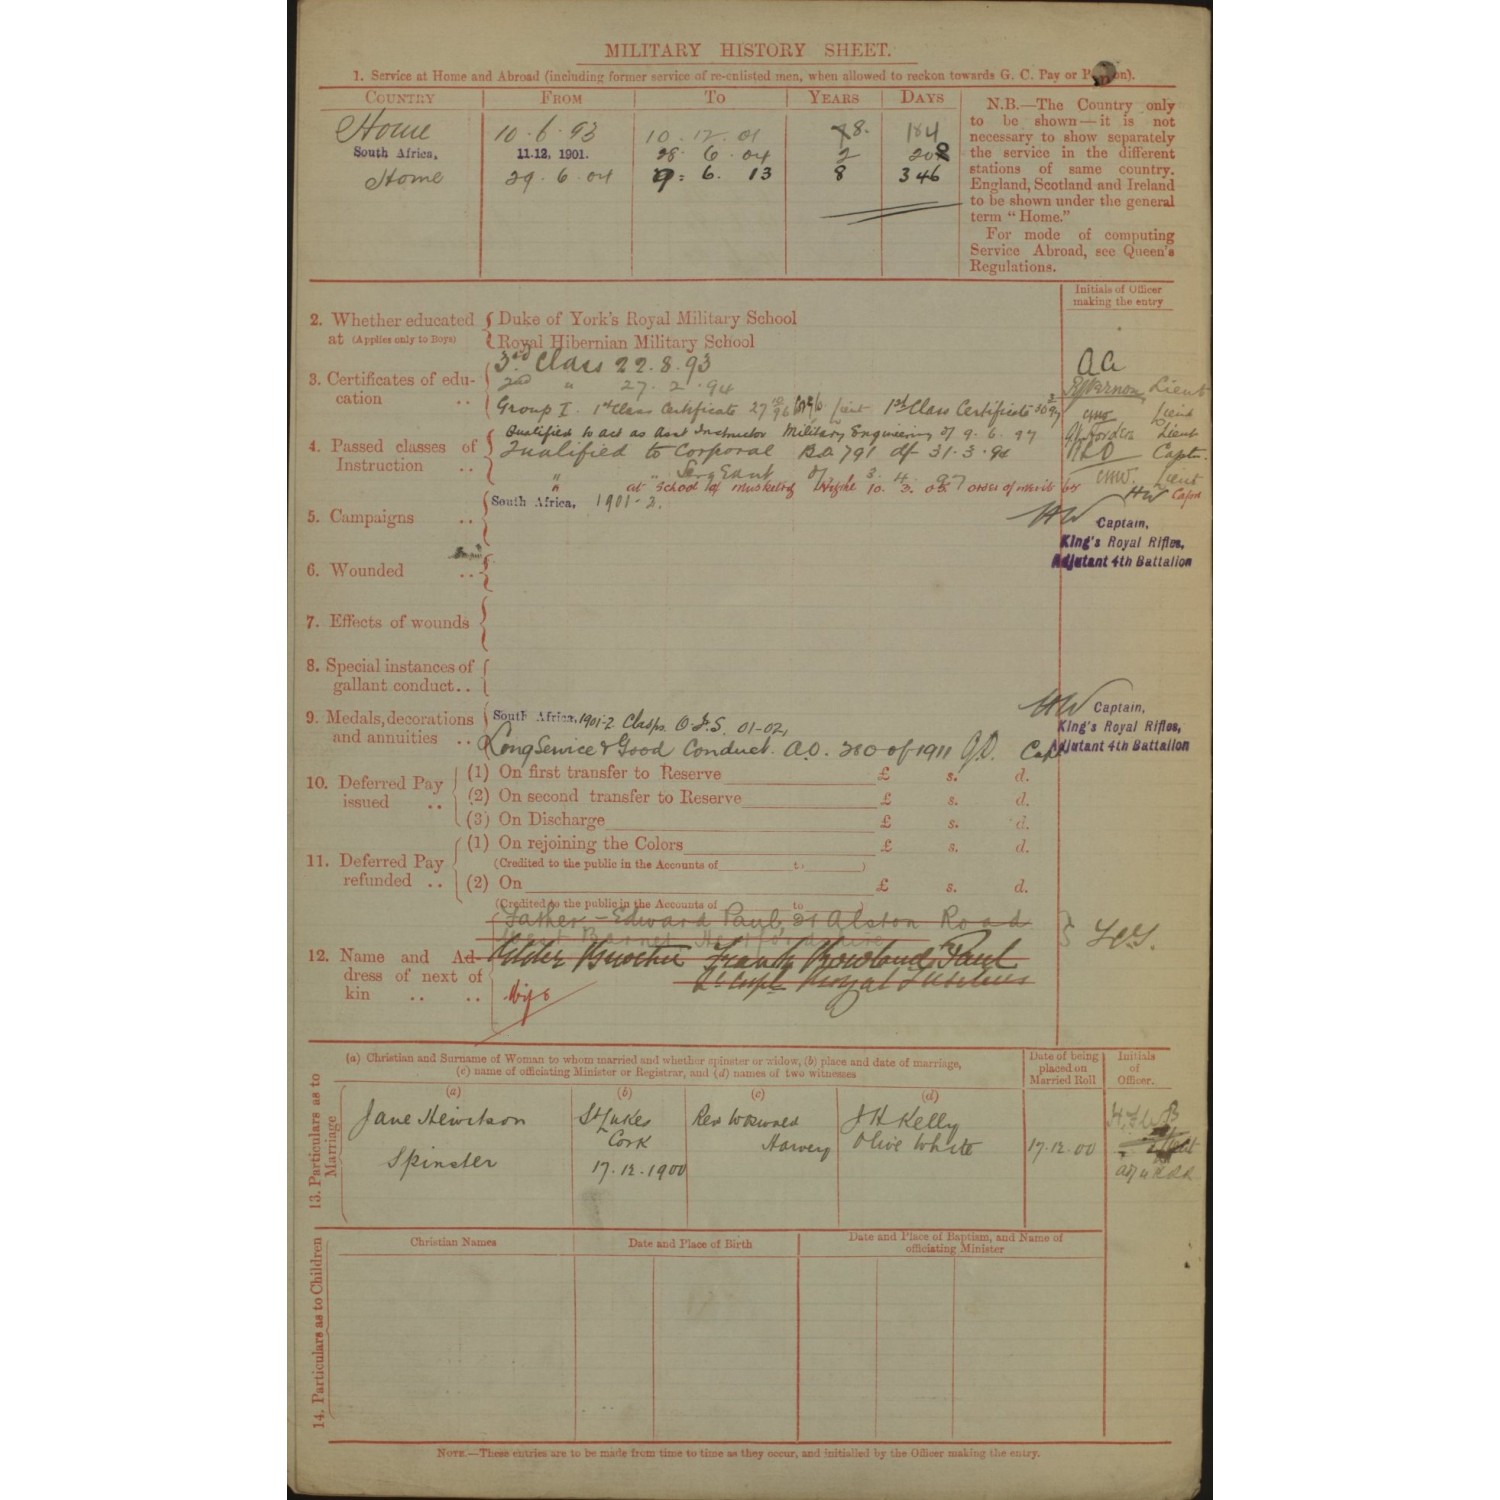 MILITARY HISTORY SHEET.
1. Service at Home and Abroad (including former service of re-enlisted men, when allowed to reckon towards G. C. Pay or Pension).
COUNTRY FROM TO YEARS DAYS
Home 10.6.93 10.12.01 8. 184
South Africa, 11.12, 1901. 28.6.04 2
Home 29.6.04 9.6.13 8 346
N.B.—The Country only
to be shown—it is not
necessary to show separately
the service in the different
stations of same country.
England, Scotland and Ireland
to be shown under the general
term "Home."
For mode of computing
Service Abroad, see Queen's
Regulations.
Initials of Officer
making the entry
2. Whether educated
at (Applies only to Boys)
Duke of York's Royal Military School
Royal Hibernian Military School
3. Certificates of edu-
cation ..
3rd Class 22.8.93
2nd " 27.2.94 Lieut
Group I. 1st Class Certificate 27 Lieut 1st Class Certificate Lieut
4. Passed classes of
Instruction ..
Qualified to act as Asst Instructor Military Engineering 9.6.97 Lieut
Qualified to Corporal 791 31.3.94 Captn.
" " Sergeant 3.4.97 Lieut
" at School of Musketry Hythe 10.3. order of merit HW Capt
5. Campaigns ..
South Africa, 1901-2.
HW Captain,
King's Royal Rifles,
Adjutant 4th Battalion
6. Wounded ..
7. Effects of wounds
8. Special instances of
gallant conduct..
9. Medals, decorations
and annuities ..
South Africa, 1901-2 Clasps. O.F.S. 01-02,
Long Service & Good Conduct. A.O. 280 of 1911 Capt
HW Captain,
King's Royal Rifles,
Adjutant 4th Battalion
10. Deferred Pay
issued ..
(1) On first transfer to Reserve £ s. d.
(2) On second transfer to Reserve £ s. d.
(3) On Discharge £ s. d.
11. Deferred Pay
refunded ..
(1) On rejoining the Colors £ s. d.
(Credited to the public in the Accounts of to )
(2) On £ s. d.
(Credited to the public in the Accounts of to )
12. Name and Ad-
dress of next of
kin .. ..
Father - Edward Paul, Alston Road
Barnet Hertfordshire
Elder Brother Frank Rowland Paul
Royal Fusiliers
Wife
13. Particulars as to
Marriage
(a) Christian and Surname of Woman to whom married and whether spinster or widow, (b) place and date of marriage,
(c) name of officiating Minister or Registrar, and (d) names of two witnesses
Date of being
placed on
Married Roll
Initials
of
Officer.
(a) (b) (c) (d)
Jane Hewitson St Lukes Rev J H Kelly
Cork Harvey Olive White 17.12.00
Spinster 17.12.1900
14. Particulars as to Children
Christian Names Date and Place of Birth
Date and Place of Baptism, and Name of
officiating Minister
NOTE.—These entries are to be made from time to time as they occur, and initialled by the Officer making the entry.